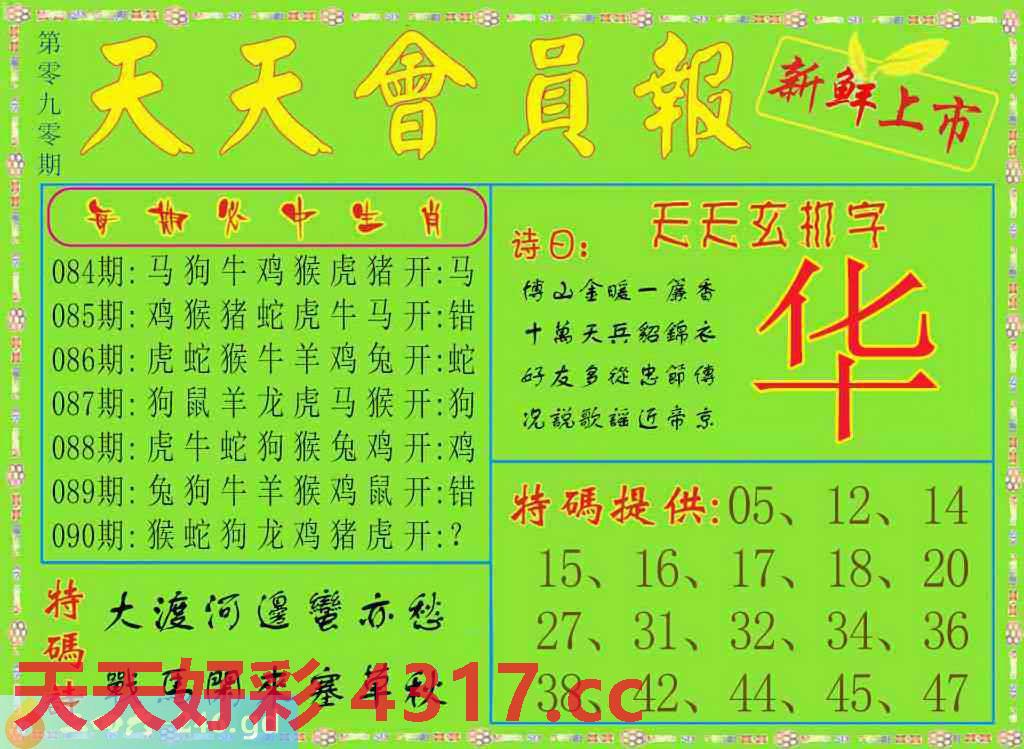 第零九零期
天天會員報
新鮮上市
每期必中生肖
084期:马狗牛鸡猴虎猪开:马
085期:鸡猴猪蛇虎牛马开:错
086期:虎蛇猴牛羊鸡兔开:蛇
087期:狗鼠羊龙虎马猴开:狗
088期:虎牛蛇狗猴兔鸡开:鸡
089期:兔狗牛羊猴鸡鼠开:错
090期:猴蛇狗龙鸡猪虎开:?
天天玄机字
诗曰:
博山金暖一簾香
十萬天兵貂錦衣
好友多從忠節傳
况説歌謡近帝京
华
特碼提供:05、12、14
15、16、17、18、20
27、31、32、34、36
38、42、44、45、47
特碼
大渡河邊蠻亦愁
戰馬閑來塞草秋
天天好彩4317.cc